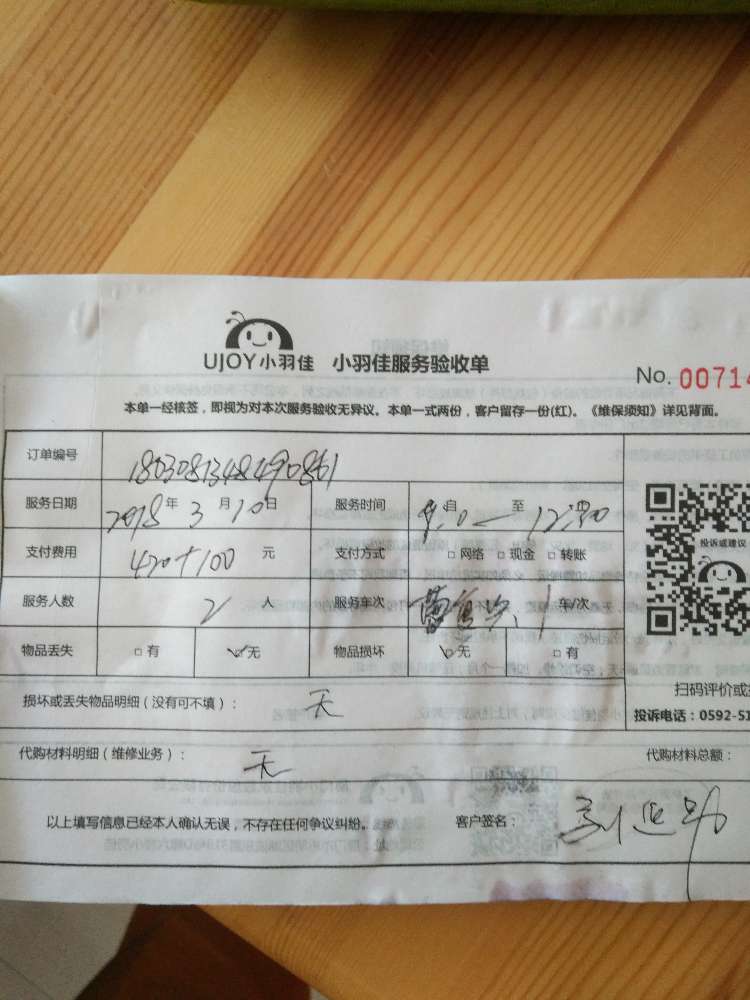 UJOY小羽佳 小羽佳服务验收单
No. 00714
本单一经核签，即视为对本次服务验收无异议。本单一式两份，客户留存一份(红)。《维保须知》详见背面。
订单编号 1803081348490861
服务日期 2018年 3 月 10 日 服务时间 自 至
支付费用 420+100 元 支付方式 □网络 □现金 □转账
投诉或建议
服务人数 2 人 服务车次 1 车/次
物品丢失 □有 ☑无 物品损坏 ☑无 □有
扫码评价或
损坏或丢失物品明细（没有可不填）： 无
投诉电话：0592-51
代购材料明细（维修业务）： 无 代购材料总额：
以上填写信息已经本人确认无误，不存在任何争议纠纷。 客户签名：